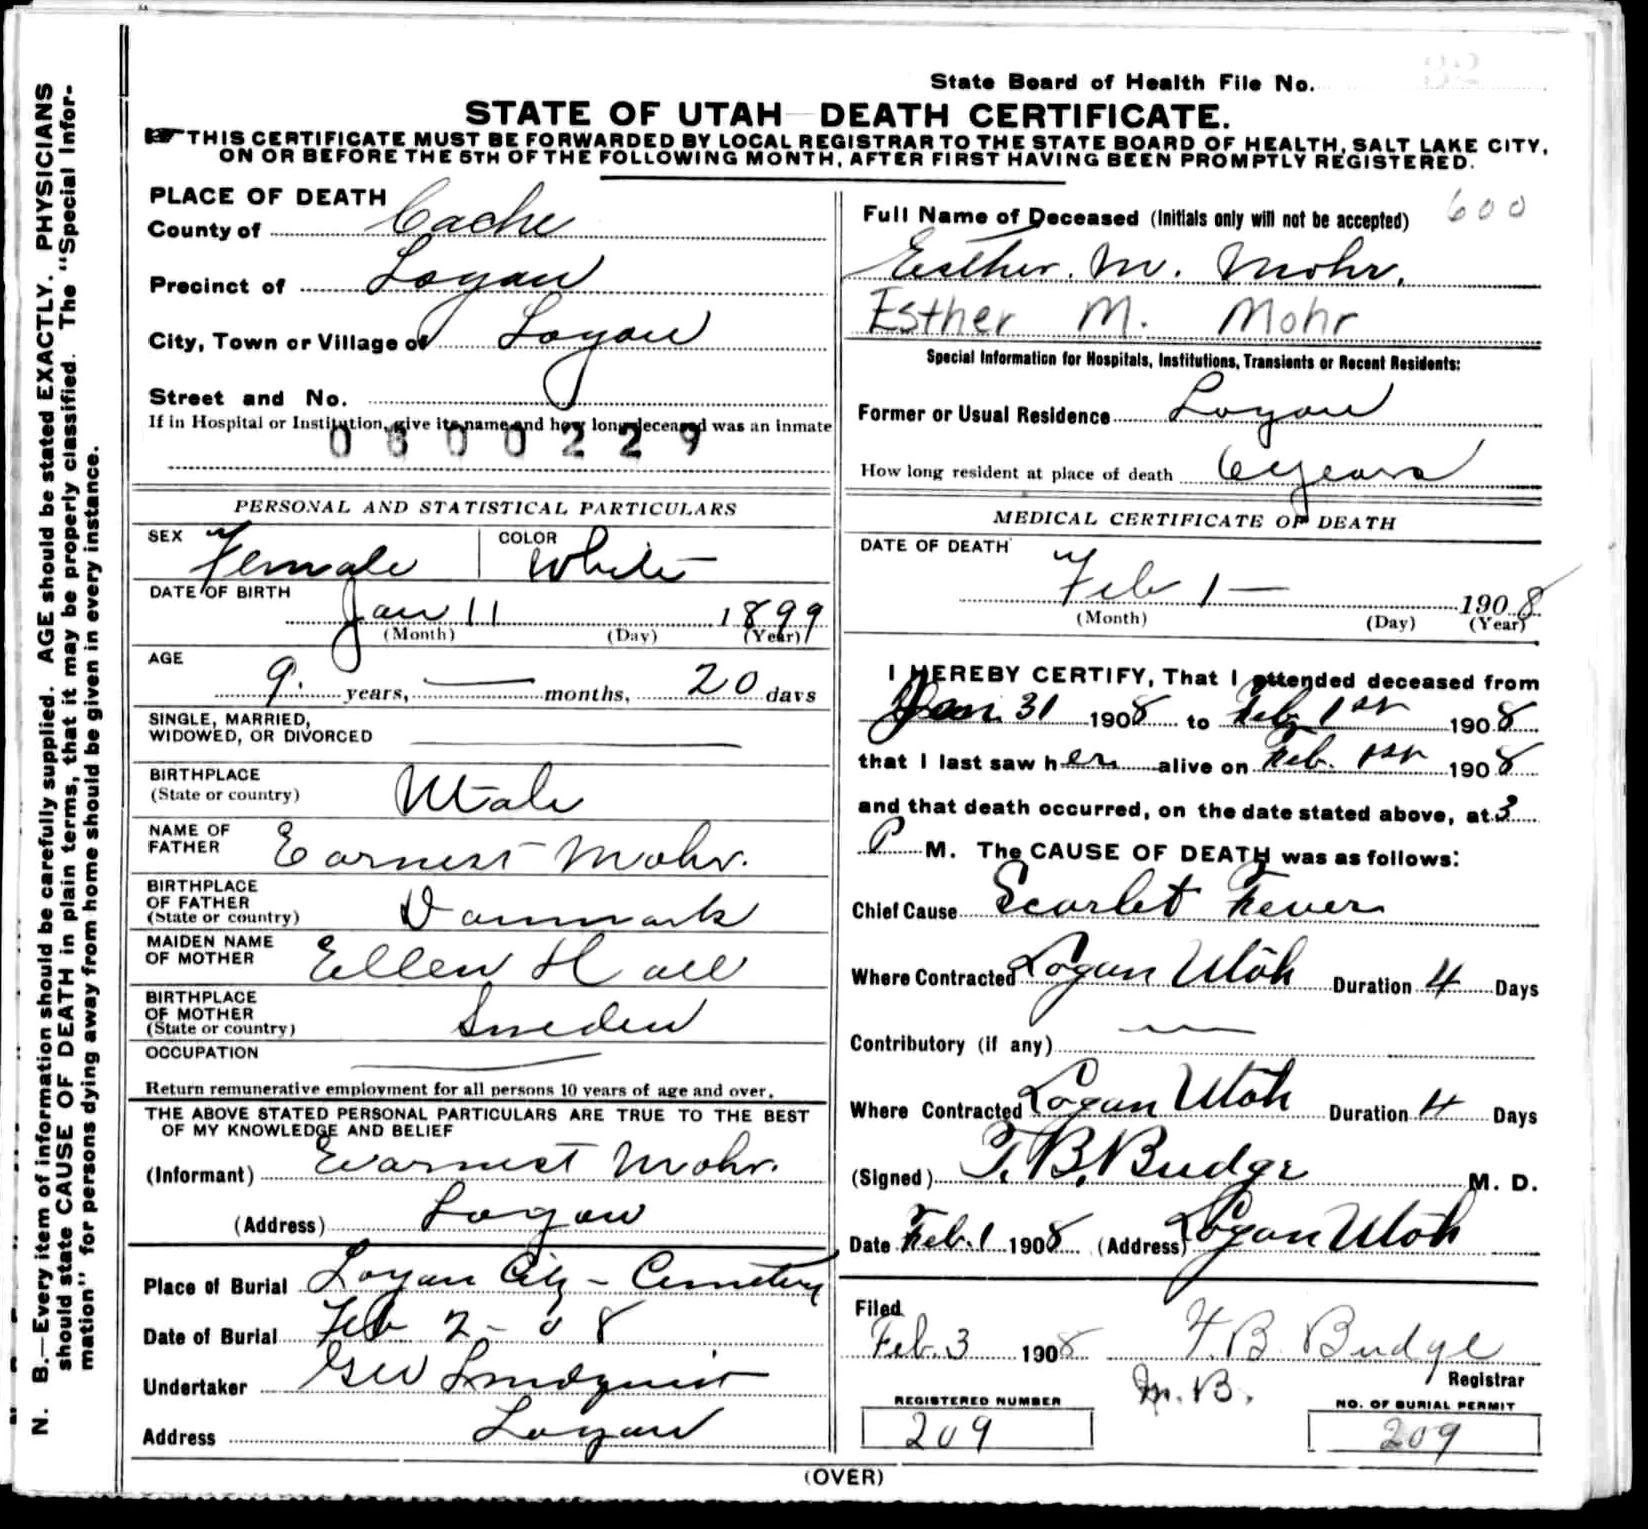 State Board of Health File No.
STATE OF UTAH DEATH CERTIFICATE.
THIS CERTIFICATE MUST BE FORWARDED BY LOCAL REGISTRAR TO THE STATE BOARD OF HEALTH, SALT LAKE CITY,
ON OR BEFORE THE 5TH OF THE FOLLOWING MONTH, AFTER FIRST HAVING BEEN PROMPTLY REGISTERED.
N. B.—Every item of information should be carefully supplied. AGE should be stated EXACTLY. PHYSICIANS
should state CAUSE OF DEATH in plain terms, that it may be properly classified. The "Special Infor-
mation" for persons dying away from home should be given in every instance.
PLACE OF DEATH
County of Cache
Precinct of Logan
City, Town or Village of Logan
Street and No.
If in Hospital or Institution, give its name and how long deceased was an inmate
0600229
PERSONAL AND STATISTICAL PARTICULARS
SEX Female COLOR White
DATE OF BIRTH
Jan 11 1899
(Month) (Day) (Year)
AGE
9. years, — months, 20 days
SINGLE, MARRIED,
WIDOWED, OR DIVORCED
BIRTHPLACE
(State or country) Utah
NAME OF
FATHER Earnest Mohr.
BIRTHPLACE
OF FATHER
(State or country) Danmark
MAIDEN NAME
OF MOTHER Ellen Hall
BIRTHPLACE
OF MOTHER
(State or country) Sweden
OCCUPATION
Return remunerative employment for all persons 10 years of age and over.
THE ABOVE STATED PERSONAL PARTICULARS ARE TRUE TO THE BEST
OF MY KNOWLEDGE AND BELIEF
(Informant) Earnest Mohr.
(Address) Logan
Place of Burial Logan City - Cemetery
Date of Burial Feb 2 - 08
Undertaker Geo Lindquist
Address Logan
Full Name of Deceased (Initials only will not be accepted) 600
Esther. M. Mohr.
Esther M. Mohr
Special Information for Hospitals, Institutions, Transients or Recent Residents:
Former or Usual Residence Logan
How long resident at place of death 6 years
MEDICAL CERTIFICATE OF DEATH
DATE OF DEATH
Feb 1 — 1908
(Month) (Day) (Year)
I HEREBY CERTIFY, That I attended deceased from
Jan. 31 1908 to Feb. 1st 1908
that I last saw her alive on Feb. 1st 1908
and that death occurred, on the date stated above, at 3
P M. The CAUSE OF DEATH was as follows:
Chief Cause Scarlet Fever
Where Contracted Logan Utah Duration 4 Days
Contributory (if any)
Where Contracted Logan Utah Duration 4 Days
(Signed) T. B. Budge M. D.
Date Feb. 1 1908 (Address) Logan Utah
Filed
Feb. 3 1908 T. B. Budge
Registrar
M. B.
REGISTERED NUMBER
209
NO. OF BURIAL PERMIT
209
(OVER)